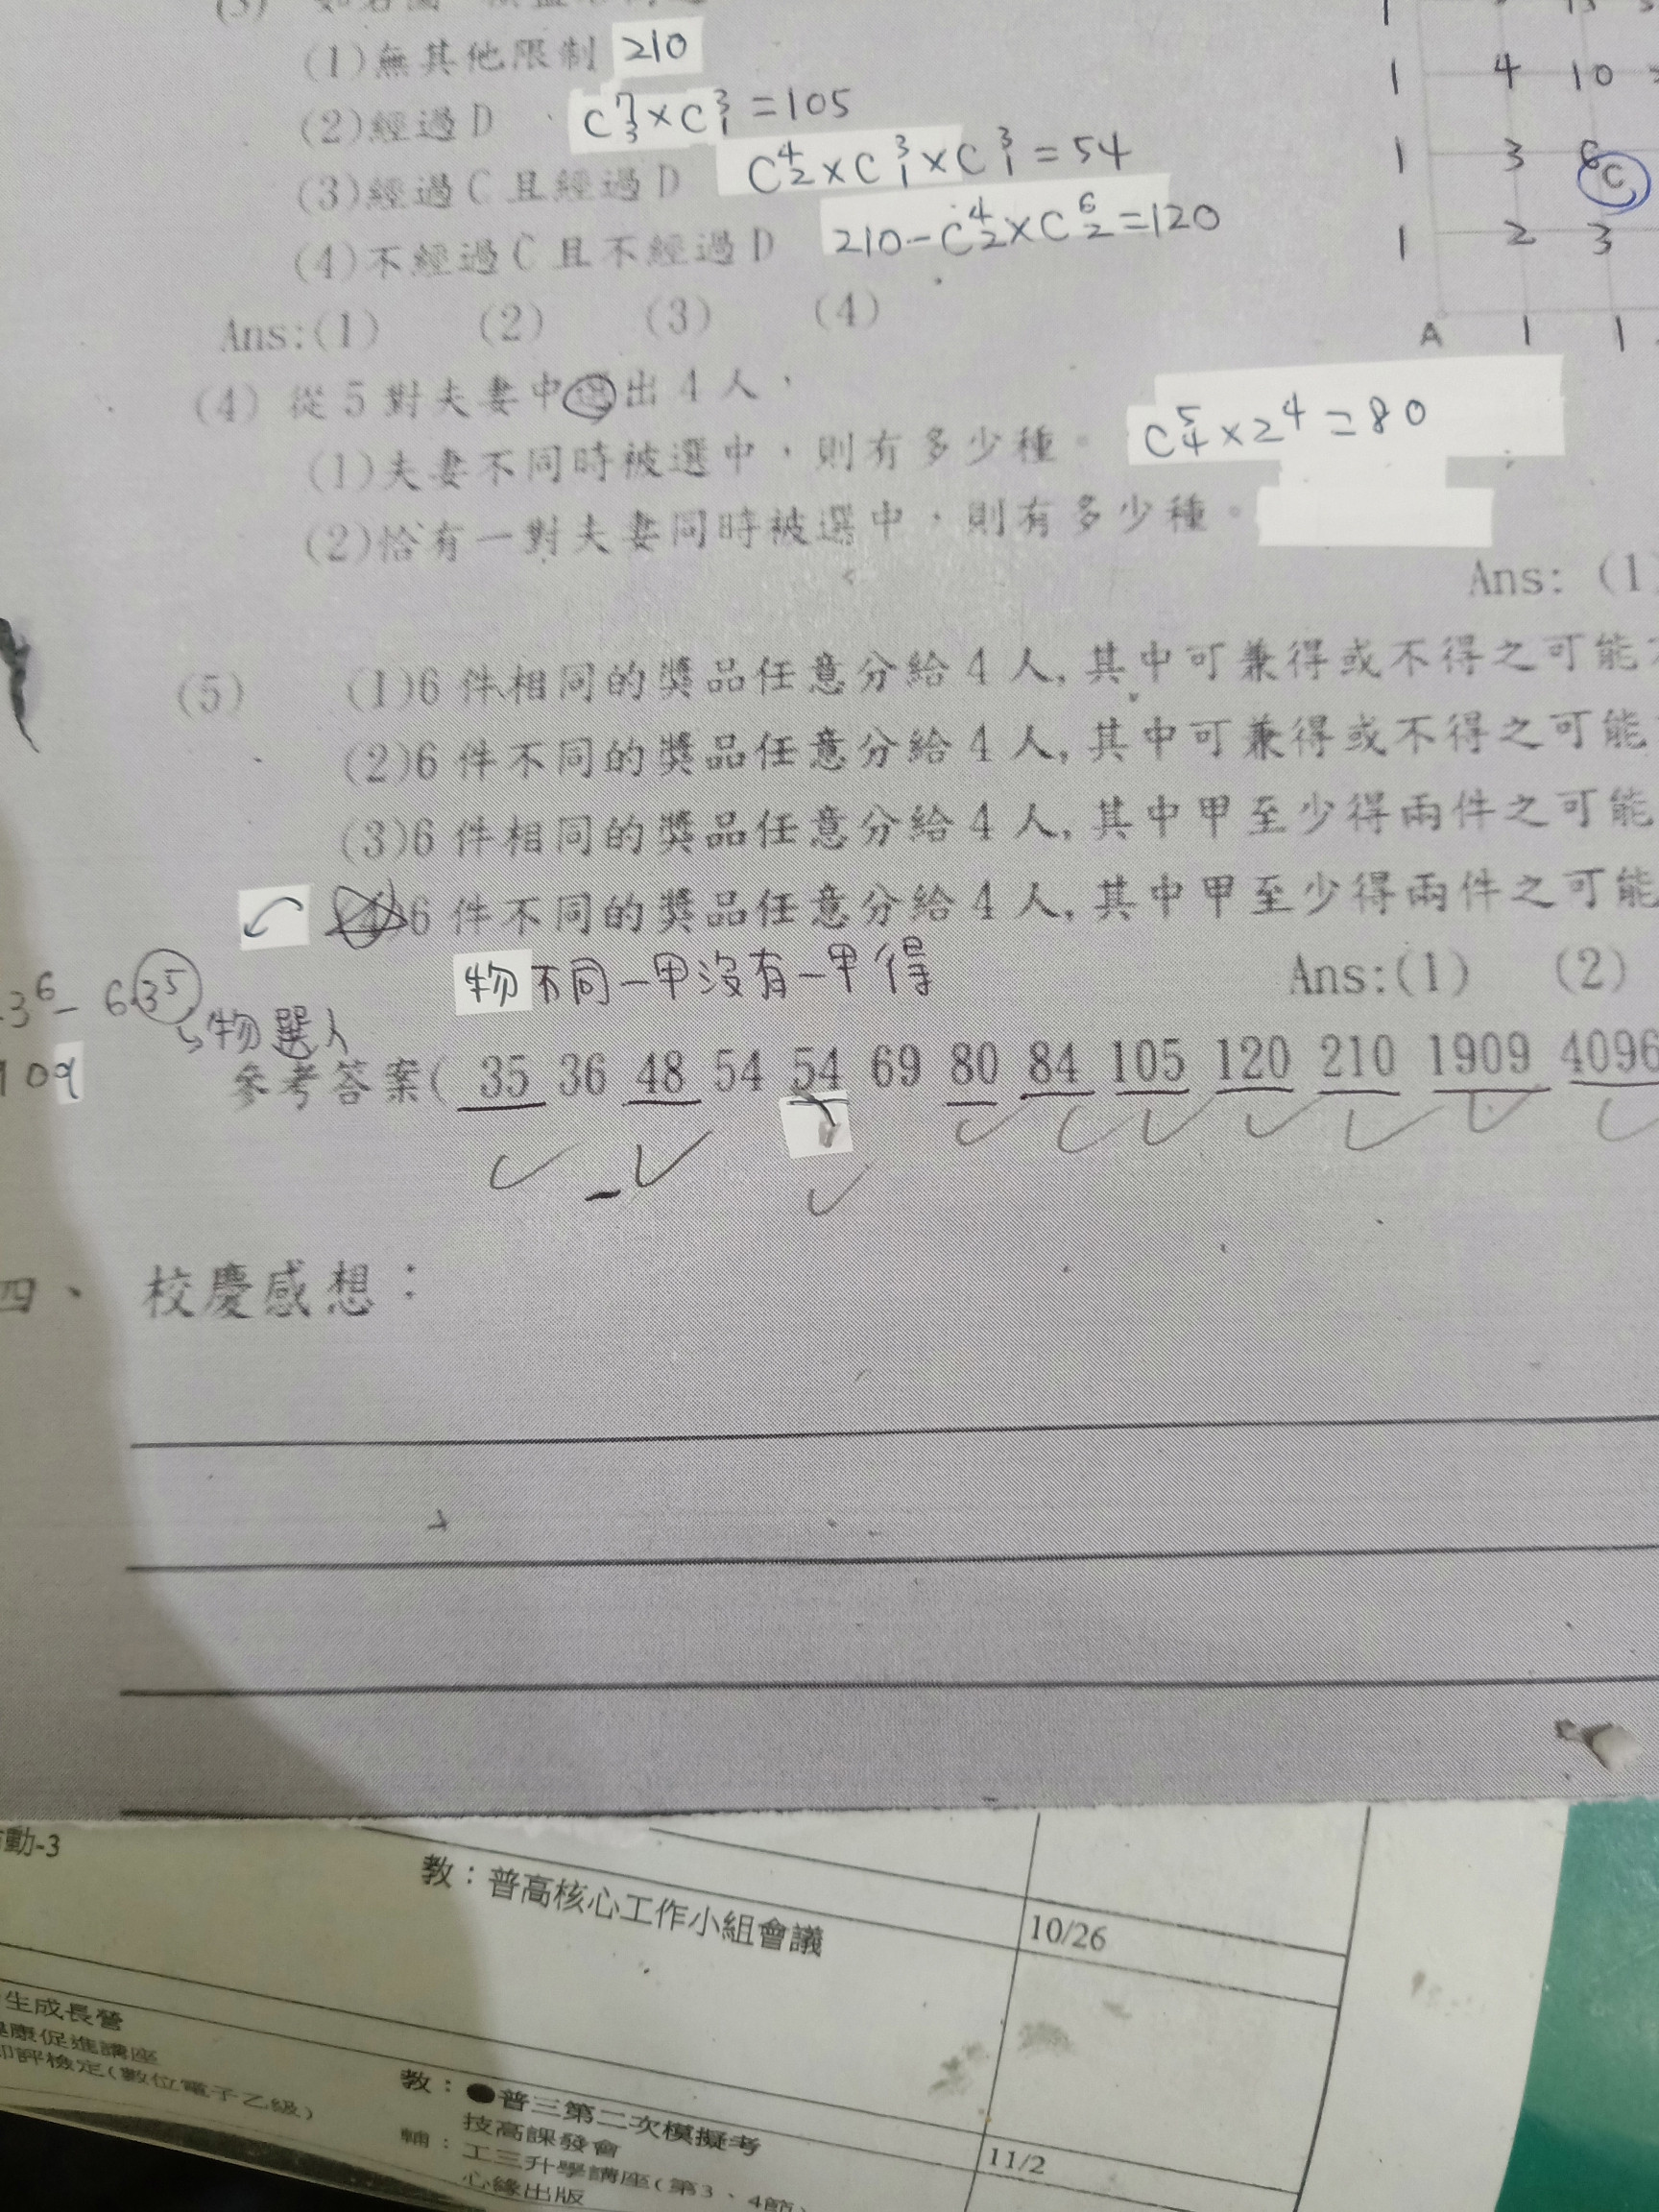 (1)無其他限制 210
(2)經過D C⁷₃×C³₁=105
(3)經過C且經過D C⁴₂×C³₁×C³₁=54
(4)不經過C且不經過D 210-C⁴₂×C⁶₂=120
Ans:(1) (2) (3) (4)
1 4 10
1 3 6 C
1 2 3
A 1 1
(4) 從5對夫妻中選出4人，
(1)夫妻不同時被選中，則有多少種。 C⁵₄×2⁴=80
(2)恰有一對夫妻同時被選中，則有多少種。
Ans: (1)
(5) (1)6件相同的獎品任意分給4人,其中可兼得或不得之可能
(2)6件不同的獎品任意分給4人,其中可兼得或不得之可能
(3)6件相同的獎品任意分給4人,其中甲至少得兩件之可能
(4)6件不同的獎品任意分給4人,其中甲至少得兩件之可能
物不同－甲沒有－甲得
Ans:(1) (2)
3⁶- 6·3⁵
物選人
參考答案( 35 36 48 54 54 69 80 84 105 120 210 1909 4096
四、 校慶感想：
動-3
教：普高核心工作小組會議
10/26
生成長營
康促進講座
評檢定(數位電子乙級)
教：●普三第二次模擬考
技高課發會
輔：工三升學講座(第3、4節)
心緣出版
11/2